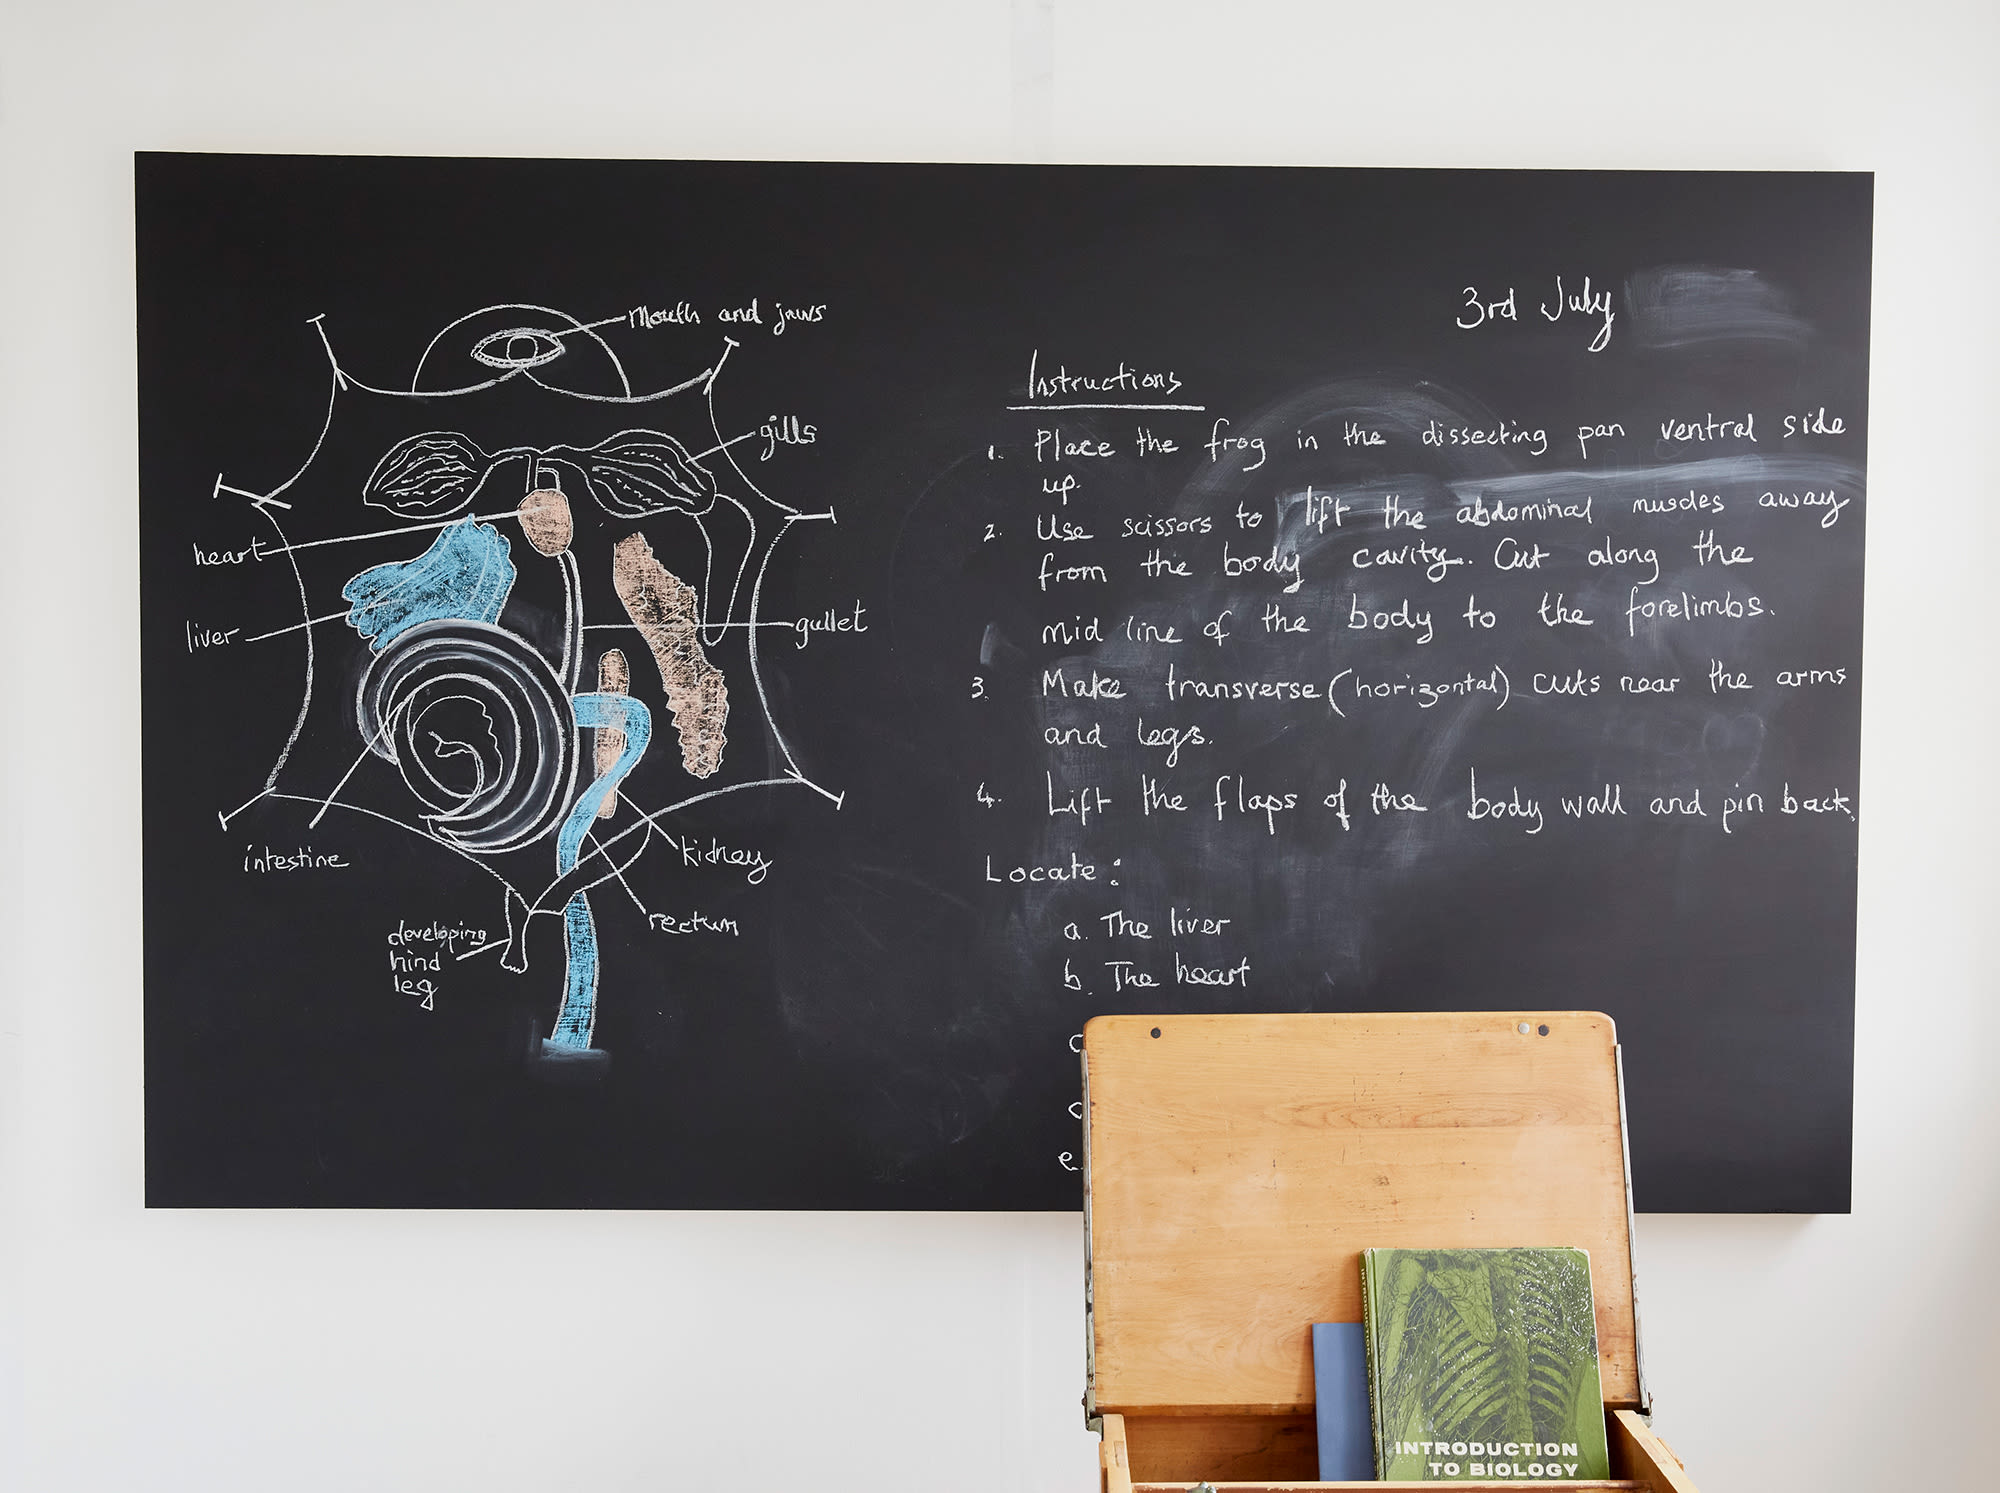 mouth and jaws
gills
heart
liver
gullet
intestine
kidney
rectum
developing
hind
leg
3rd July
Instructions
1. Place the frog in the dissecting pan ventral side
up.
2. Use scissors to lift the abdominal muscles away
from the body cavity. Cut along the
mid line of the body to the forelimbs.
3. Make transverse (horizontal) cuts near the arms
and legs.
4. Lift the flaps of the body wall and pin back.
Locate:
a. The liver
b. The heart
e.
INTRODUCTION
TO BIOLOGY